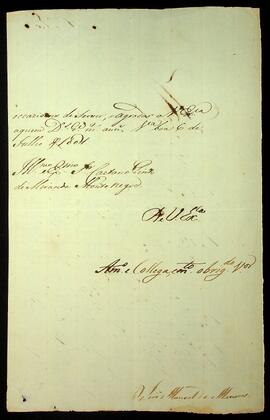 occazioens de servir, e agradar a V. Exa
aquem Ds. Gde. ms. ans. Va. boa 6 de
Julho d 1804
Illmo. e Exmo. Sr. Caetano Pinto
de Miranda Montenegro
De V. Exa.
Amo. e Collega, mto. obrigdo. Vor.
Manoel de Menezes